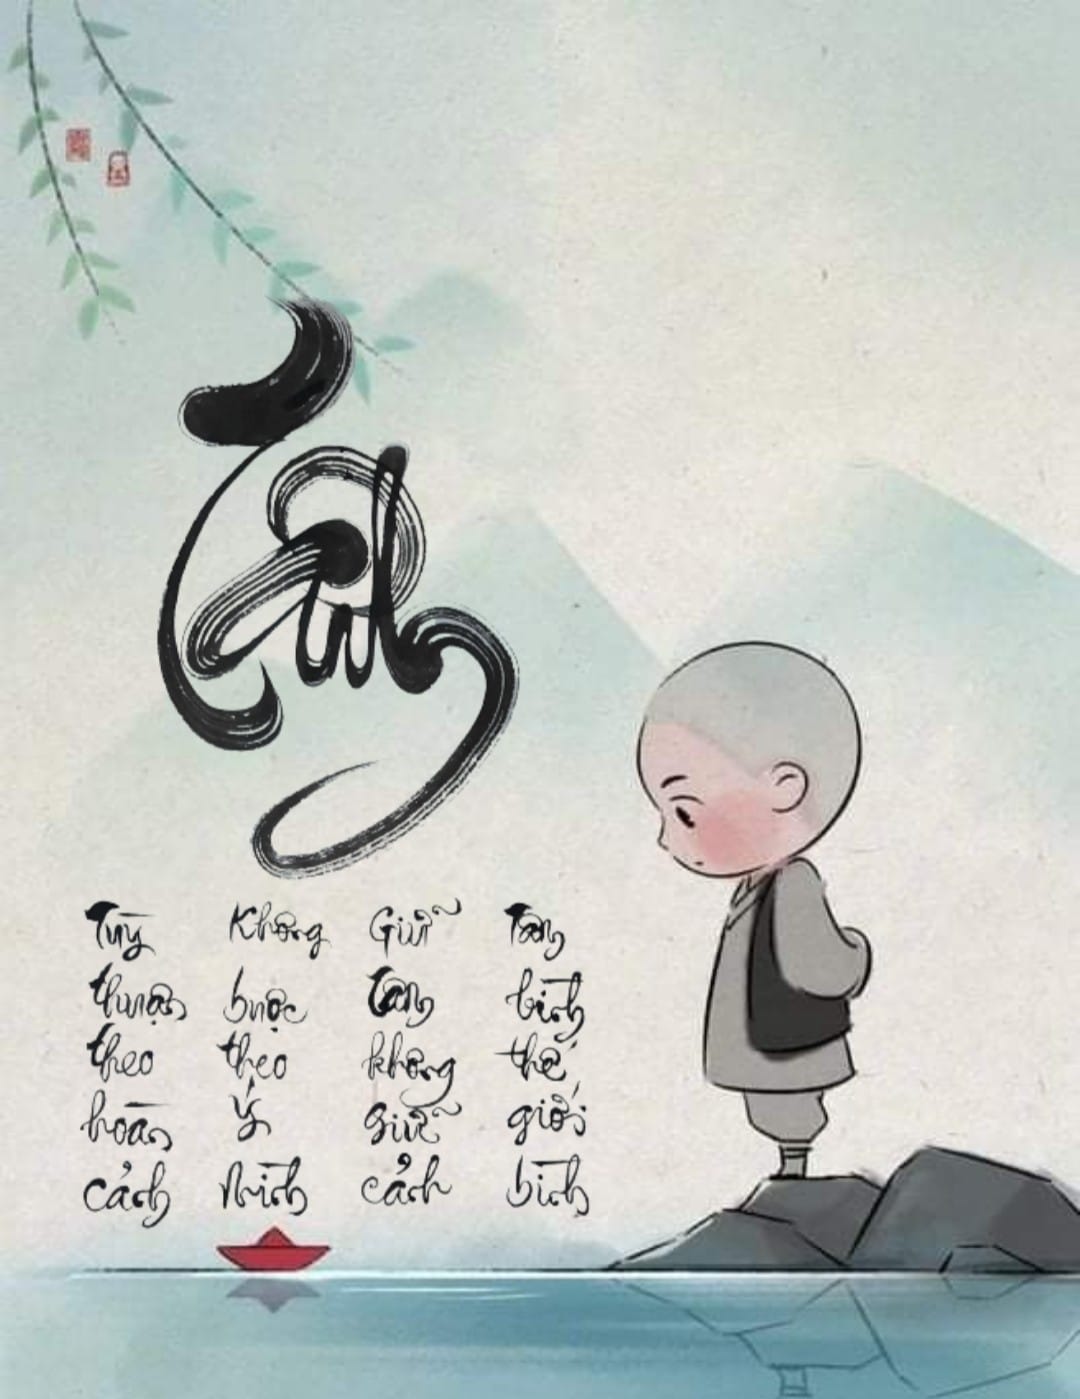 Tùy thuận theo hoàn cảnh
Không buộc theo ý mình
Giữ tâm không giữ cảnh
Tâm bình thế giới bình